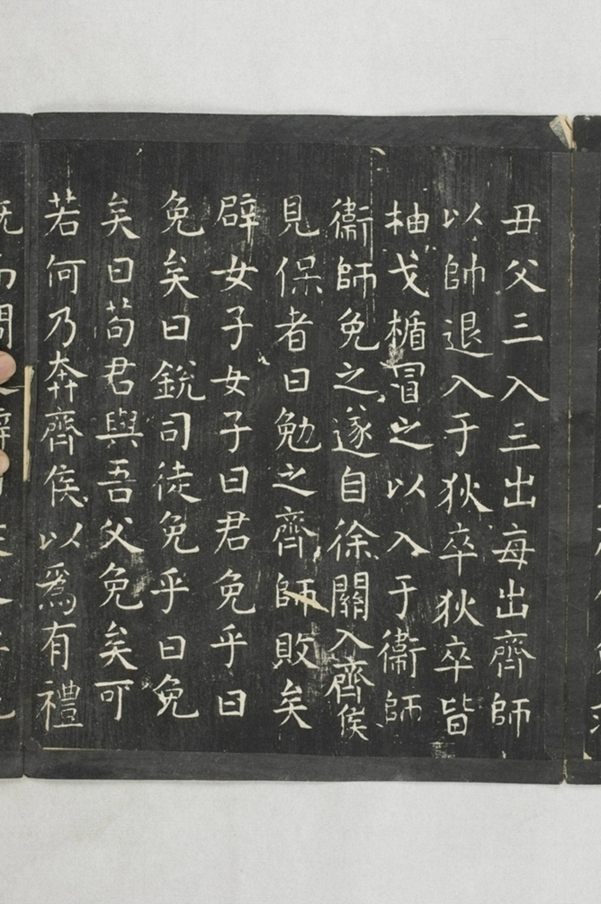 丑父三入三出每出齊師
以帥退入于狄卒狄卒皆
柚戈楯冒之以入于衛師
衛師免之遂自徐關入齊侯
見保者曰勉之齊師敗矣
辟女子女子曰君免乎曰
免矣曰銳司徒免乎曰免
矣曰苟君與吾父免矣可
若何乃奔齊侯以為有禮
既而問之辟司徒之妻也